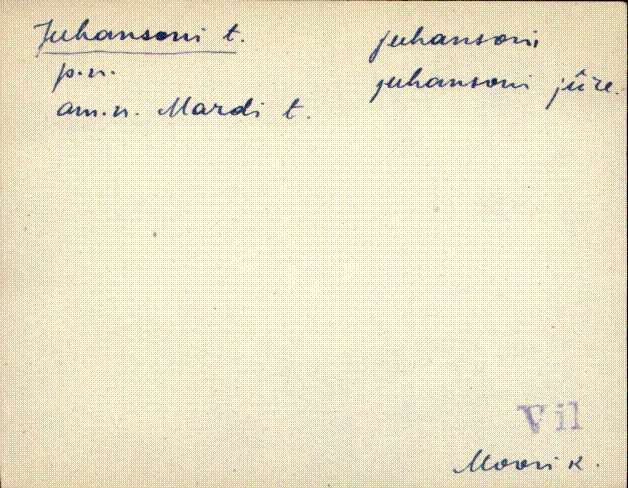 Juhansoni t.
p.n.
am.n. Mardi t.
juhansoni,
juhansoni jûre.
Vil
Moori k.